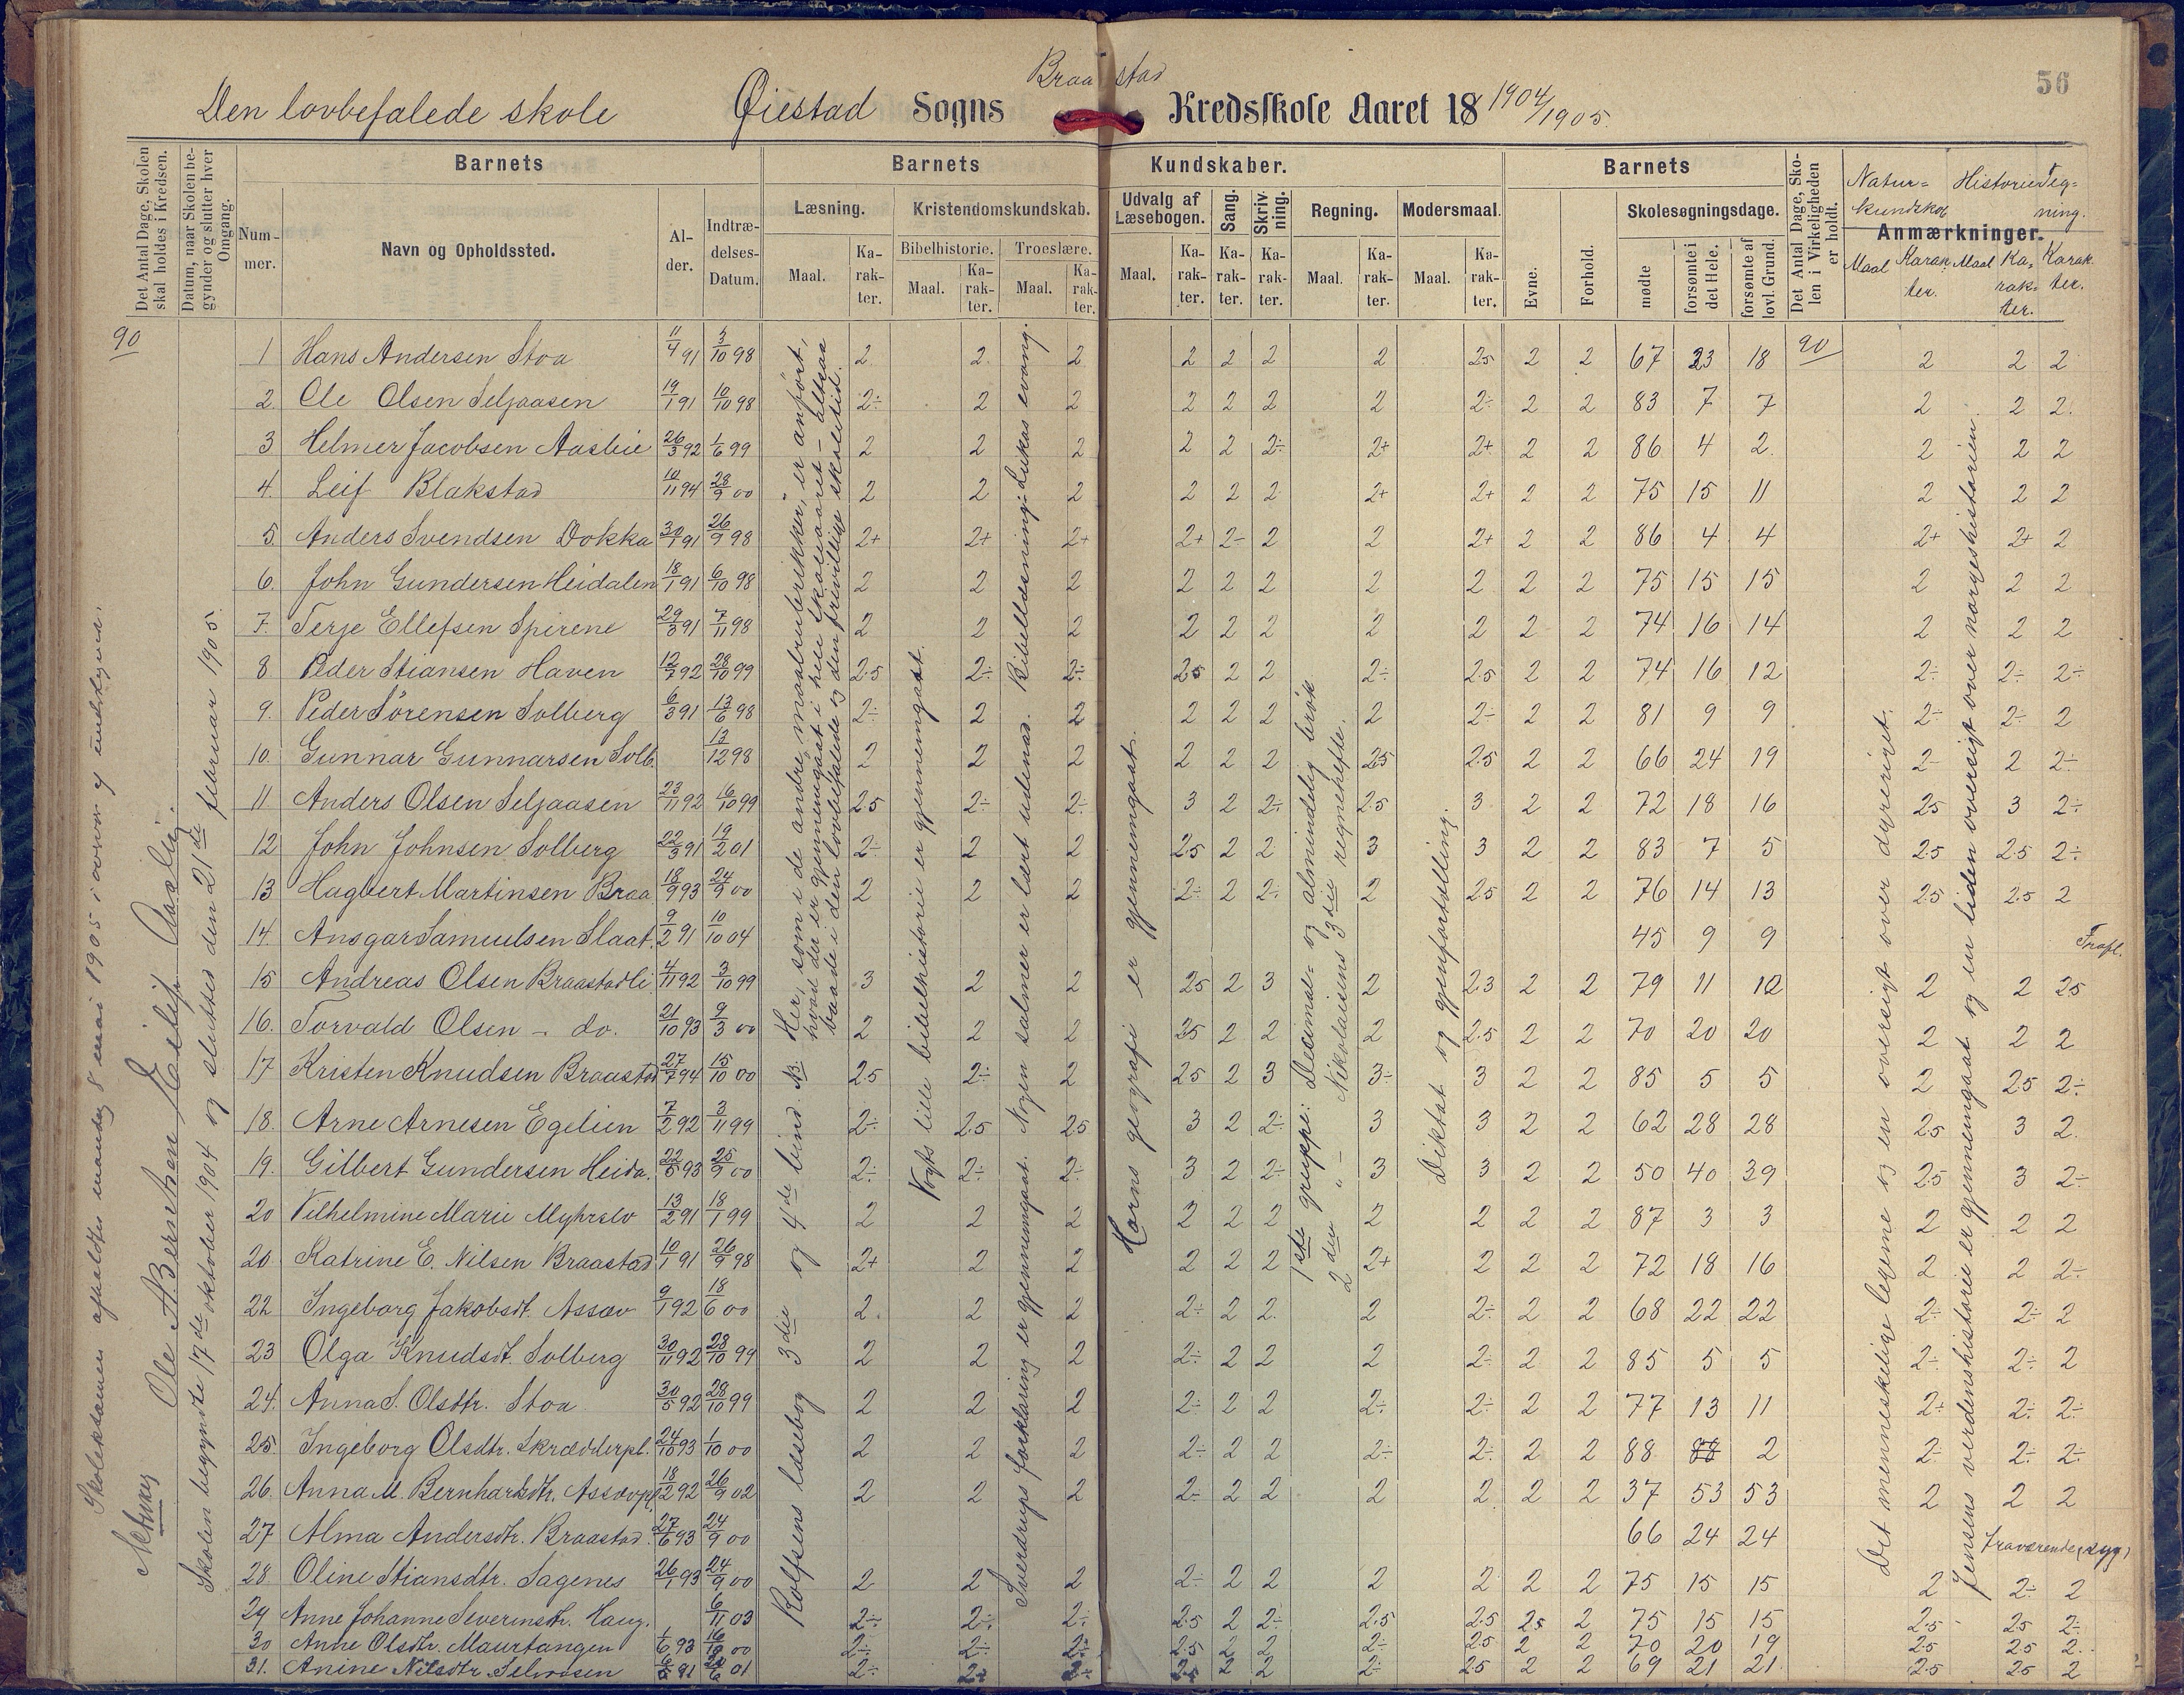 56
Braastad
Den lovbefalede skole Øiestad Sogns Kredsskole Aaret 18 1904/1905.
Det Antal Dage, Skolen skal holdes i Kredsen.
Datum, naar Skolen begynder og slutter hver Omgang.
Barnets
Nummer.
Navn og Opholdssted.
Alder.
Indtrædelses-Datum.
Barnets Kundskaber.
Læsning.
Maal.
Karakter.
Kristendomskundskab.
Bibelhistorie.
Maal.
Karakter.
Troeslære.
Maal.
Karakter.
Udvalg af Læsebogen.
Maal.
Karakter.
Sang.
Karakter.
Skrivning.
Karakter.
Regning.
Maal.
Karakter.
Modersmaal.
Maal.
Karakter.
Barnets
Evne.
Forhold.
Skolesøgningsdage.
mødte
forsømte i det Hele.
forsømte af lovl. Grund.
Det Antal Dage, Skolen i Virkeligheden er holdt.
Anmærkninger.
Naturkundskab
Maal Karakter.
Historie
Maal Karakter.
Tegning.
Karakter.
90
90
1 Hans Andersen Stoa 11/4 91 3/10 98 2 2 2 2 2 2 2 2.5 2 2 67 23 18 2 2 2
2 Ole Olsen Seljaasen 19/1 91 10/10 98 2÷ 2 2 2 2 2 2 2÷ 2 2 83 7 7 2 2 2
3 Helmer Jacobsen Aaslie 26/3 92 1/6 99 2 2 2 2 2 2÷ 2+ 2+ 2 2 86 4 2 2 2 2
4 Leif Blakstad 10/11 94 28/9 00 2 2 2 2 2 2 2+ 2+ 2 2 75 15 11 2 2 2
5 Anders Svendsen Dokka 30/1 91 26/9 98 2+ 2+ 2+ 2+ 2÷ 2 2 2+ 2 2 86 4 4 2+ 2+ 2
6 John Gundersen Heidalen 18/1 91 6/10 98 2 2 2 2 2 2 2 2 2 2 75 15 15 2 2 2
7 Terje Ellefsen Spirene 29/3 91 7/11 98 2 2 2 2 2 2 2 2 2 2 74 16 14 2 2 2
8 Peder Stiansen Haven 12/7 92 28/10 99 2.5 2÷ 2÷ 2.5 2 2 2÷ 2.5 2 2 74 16 12 2÷ 2÷ 2÷
9 Peder Sörensen Solberg 6/3 91 13/6 98 2÷ 2 2 2 2 2 2 2÷ 2 2 81 9 9 2÷ 2÷ 2
10 Gunnar Gunnarsen Solb. 13/12 98 2 2 2 2 2 2 2.5 2.5 2 2 66 24 19 2÷ 2 2÷
11 Anders Olsen Seljaasen 23/11 92 6/10 99 2.5 2÷ 2÷ 3 2 2÷ 2.5 3 2 2 72 18 16 2.5 3 2÷
12 John Johnsen Solberg 22/3 91 19/2 01 2÷ 2 2 2.5 2 2 3 3 2 2 83 7 5 2.5 2.5 2÷
13 Hagbert Martinsen Braa 18/9 93 24/9 00 2 2 2 2÷ 2 2÷ 2 2.5 2 2 76 14 13 2.5 2.5 2
14 Ansgar Samuelsen Slaat. 9/2 91 10/10 04 45 9 9
15 Andreas Olsen Braastadli 4/11 92 3/10 99 3 2 2 2.5 2 3 2 2.3 2 2 79 11 10 2 2 2.5
16 Torvald Olsen - do. 21/10 93 9/3 00 2 2 2 2.5 2 2 2 2.5 2 2 70 20 20 2 2 2
17 Kristen Knudsen Braastad 27/7 94 15/10 00 2.5 2÷ 2 2.5 2 3 3÷ 3 2 2 85 5 5 2 2.5 2÷
18 Arne Arnesen Egelien 7/2 92 3/11 99 2÷ 2.5 2.5 3 2 2÷ 3 3 2 2 62 28 28 2.5 3 2
19 Gilbert Gundersen Heida. 22/5 93 25/9 00 2÷ 2÷ 2÷ 3 2 2÷ 3 3 2 2 50 40 39 2.5 3 2÷
20 Vilhelmine Marie Myhrelv 13/2 91 18/1 99 2 2 2 2 2 2 2 2 2 2 87 3 3 2 2 2
20 Katrine E. Nilsen Braastad 10/1 91 26/9 98 2+ 2 2 2 2 2 2+ 2 2 2 72 18 16 2 2 2÷
22 Ingeborg Jakobsdt. Assæv 9/1 92 18/6 00 2 2 2 2÷ 2 2 2 2÷ 2 2 68 22 22 2÷ 2÷ 2
23 Olga Knudsdt. Solberg 30/11 92 28/10 99 2 2 2 2÷ 2 2 2 2÷ 2 2 85 5 5 2÷ 2÷ 2
24 Anna S. Olsdtr. Stoa 30/5 92 28/10 99 2 2 2 2÷ 2 2 2÷ 2÷ 2 2 77 13 11 2÷ 2÷ 2÷
25 Ingeborg Olsdtr. Skrædderpl. 24/10 93 1/10 00 2 2 2 2÷ 2 2 2÷ 2÷ 2 2 88 88 2 2÷ 2÷ 2÷
26 Anna M. Bernhardsdtr. Assævpl. 18/12 92 26/9 02 2 2 2 2÷ 2 2 2 2 2 2 37 53 53 2 2 2
27 Alma Andersdtr. Braastad. 27/6 93 24/9 00 66 24 24 Fraværende (syg)
28 Oline Stiansdtr. Sagenes 26/1 93 24/9 00 2 2 2 2÷ 2 2 2 2 2 2 75 15 15 2 2÷ 2
29 Anne Johanne Severinstr. Haug. 6/11 03 2÷ 2÷ 2÷ 2.5 2 2÷ 2.5 2.5 2.5 2 75 15 15 2.5 2.5 2÷
30 Anne Olsdtr. Maurtangen 1/6 93 16/10 00 2÷ 2÷ 2÷ 2.5 2 2 2÷ 2.5 2 2 70 20 19 2.5 2.5 2
31. Anine Nilsdtr 91 01 2÷ 2÷ 2÷ 2.5 2 2 2÷ 2.5 2 2 69 21 21 2.5 2.5 2
Skoleeksamen afholdtes mandag 8 mai 1905
Ole A. Bernskau Eilif Aaslig.
Skolen begyndte 17de oktober 1904 og sluttes den 21de februar 1905.
Rolfsens læsebog 3die og 4de bind. NB. Her, som i de andre maalrubrikker, er anført,
hvad der er gjennemgaat i hele skoleaaret - altsaa
baade i den lovbefalede og den frivillige skoletid.
Vogts lille bibelhistorie er gjennemgaat.
Sverdrups forklaring er gjennemgaat. Nogen salmer er lært udenad. Bibellæsning: Lukas evang.
Horns geografi er gjennemgaat.
1ste gruppe: Decimal- og almindelig brøk
2den " - Nikolaisens 3die regnehefte.
Diktat og gjenfortælling.
Det menneskelige legeme og en oversigt over dyreriget.
Jensens verdenshistorie er gjennemgaat og en liden oversigt over norgeshistorien.